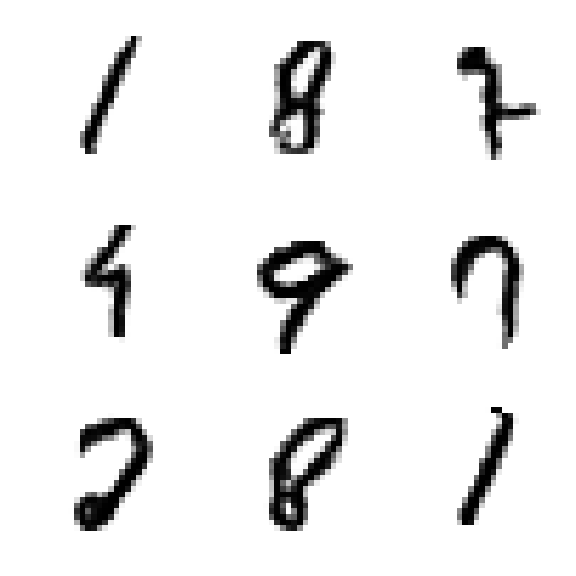 1 8 7
4 9 7
2 8 1